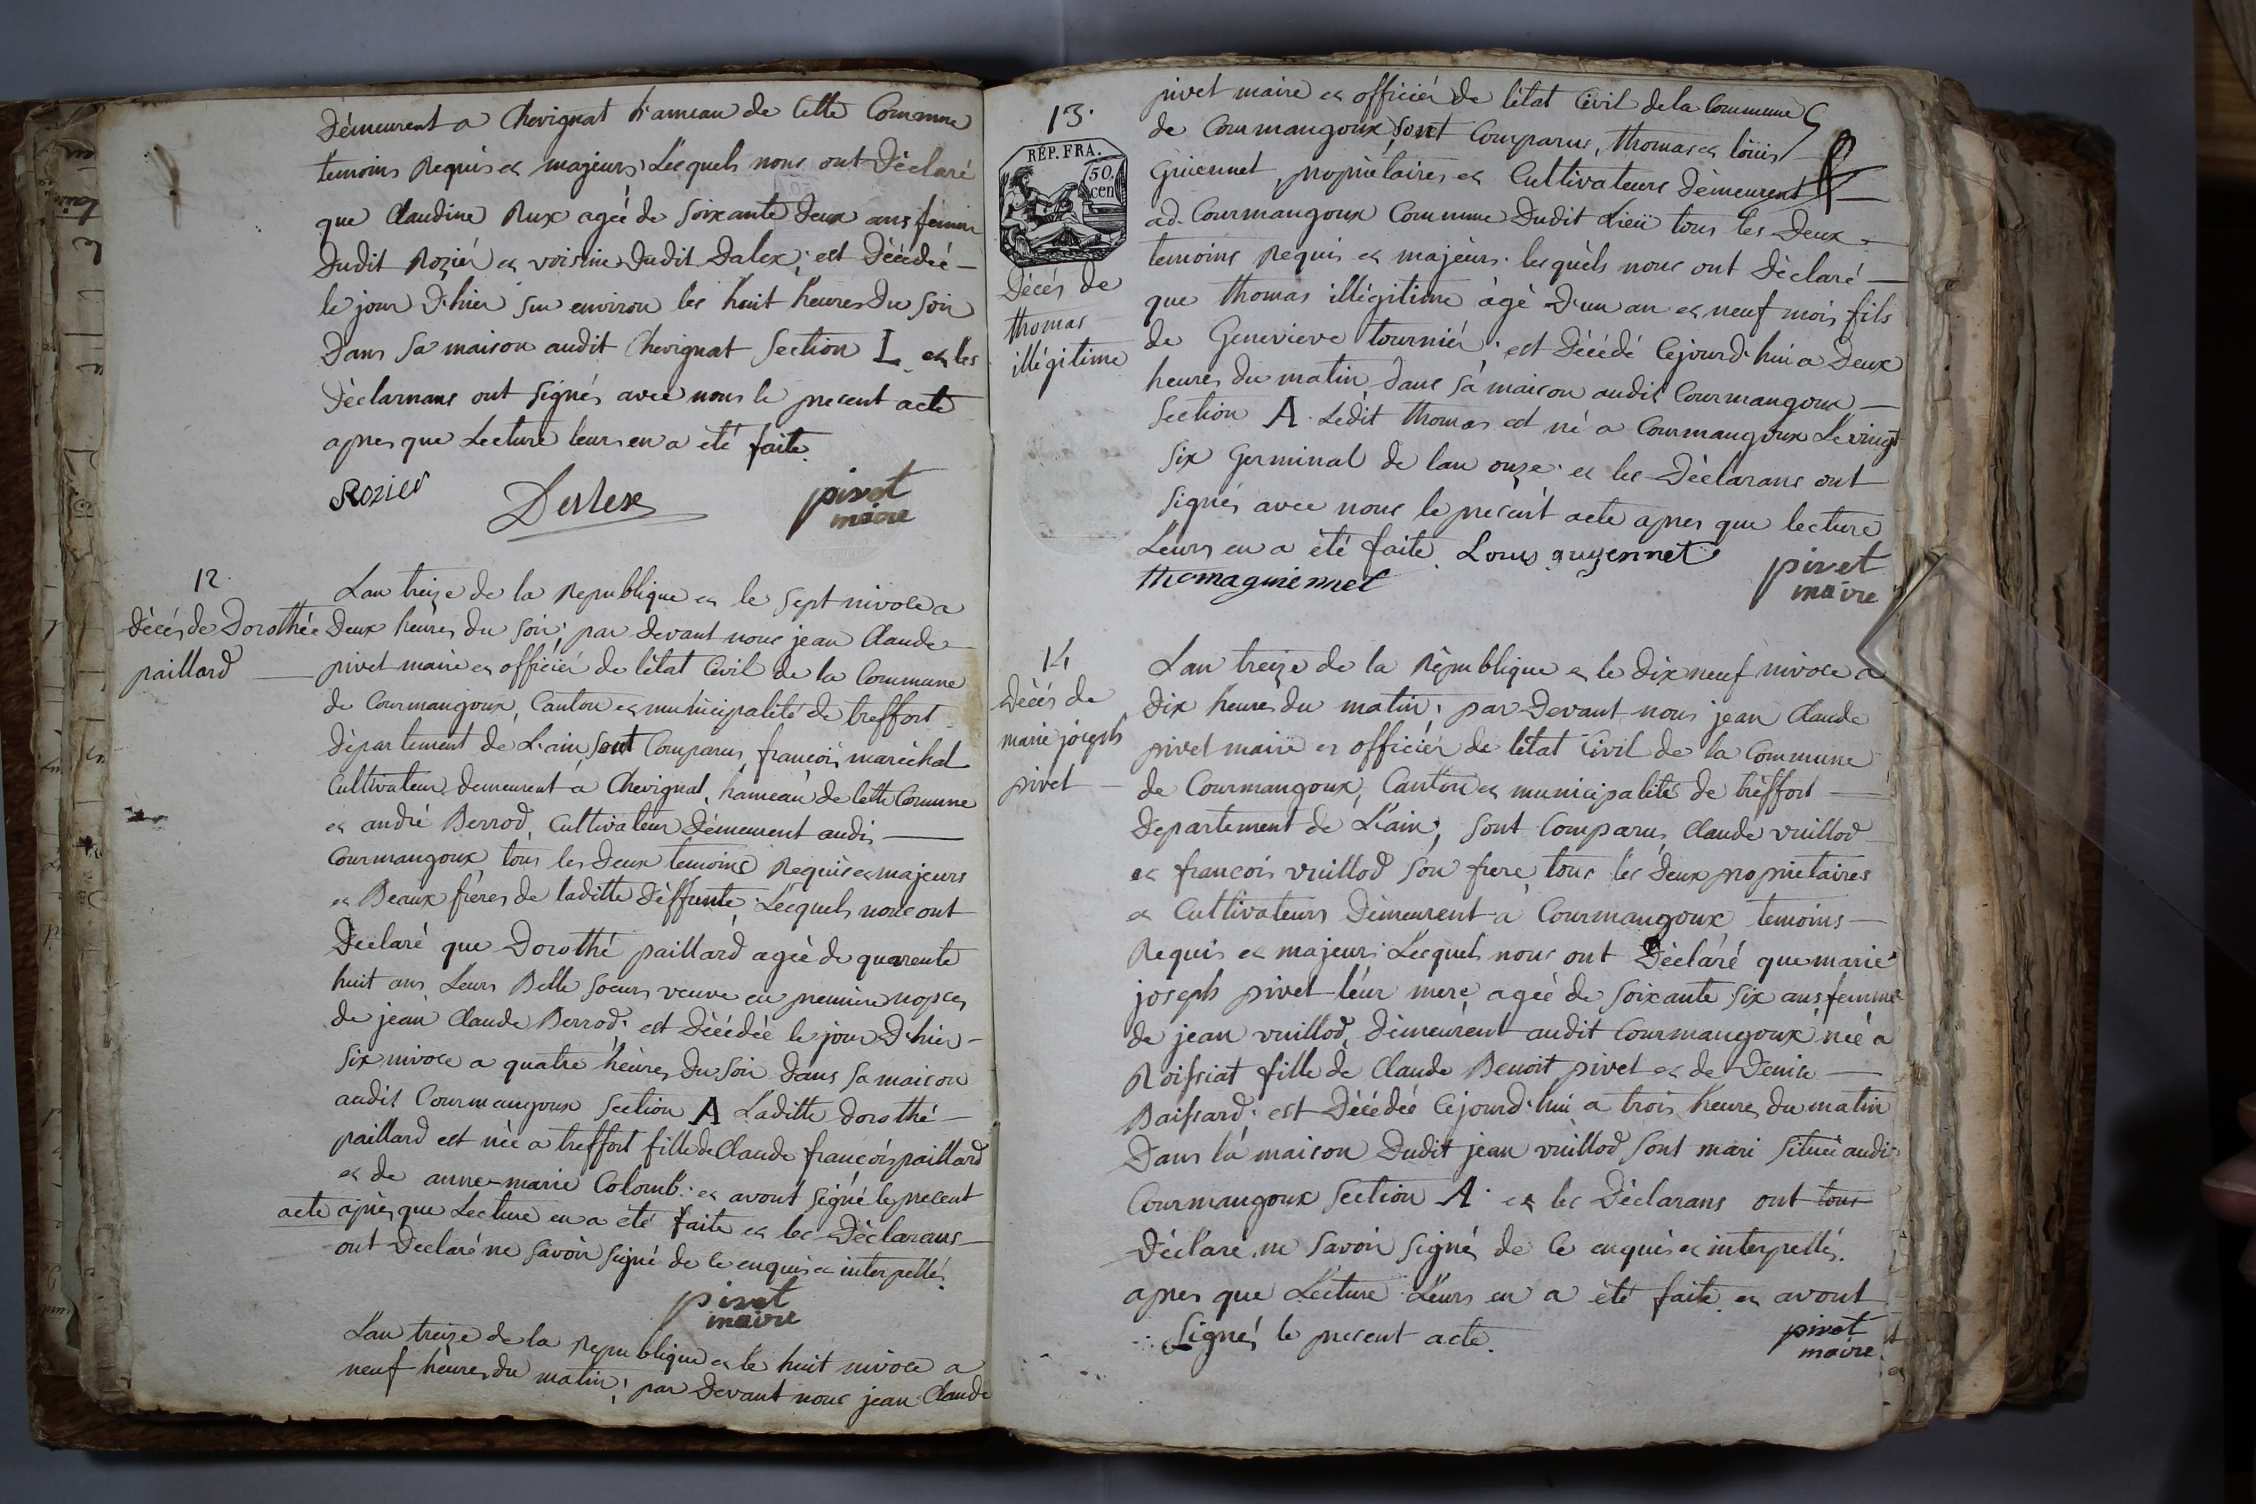 Démeurent a Chevignat hameau de Cette Commune
temoins Requis et majeurs Lesquels nous ont Déclaré
que Claudine Rux agée de soixante Deux ans femme
Dudit Rozier et voisine dudit Dalex, est Décédée
le jour D'hier sur environ les huit heures du soir
Dans sa maison audit Chevignat Section L et les
Déclarnans ont signés avec nous le present acte
apres que Lecture leurs en a eté faite.
Rozier
pivet
maire
12.
Décés de Dorothée
paillard
Lan treize de la Republique et le sept nivose a
Deux heures du soir; par devant nous jean Claude
pivet maire et officier de l'état Civil de la Commune
de Courmangoux, Canton et municipalité de treffort
département de L'ain, sont Comparus, françois maréchal
Cultivateur demeurent à Chevignat, hameau de Cette Comune
et andré Berrod, Cultivateur Démeurent audis
Courmangoux tous les Deux temoins Requis et majeurs
et Beaux fréres de laditte déffunte, Lesquels nous ont
Déclaré que Dorothé paillard agée de quarente
huit ans Leurs Belle soeurs veuve en premiere nopces
de jean Claude Berrod, est Décédée le jour D'hier
six nivose a quatre héures Du soir Dans sa maison
audit Courmangoux Section A Laditte dorothé
paillard est née a treffort fille de Claude françois paillard
et de anne-marie Colomb. et avont signé le present
acte après que Lecture en a eté faite et les Déclarans
ont Declaré ne savoir signé de ce enquis et interpellés.
pivet
maire
Lan treize de la Republique et le huit nivose a
neuf héures du matin; par Devant nous jean Claude
13.
REP. FRA.
50.
cen
Décés de
thomas
illégitime
pivet maire et officier de l'état Civil de la Commune
de Courmangoux, sont Comparus, thomas et loüis
Guiennet, propriétaires et Cultivateurs démeurent
ad. Courmangoux Commune Dudit Lieü tous les Deux
temoins Requis et majeurs. lesquèls nous ont Déclaré
que thomas illégitime âgé D'un an et neuf mois fils
de Genevieve tournier, est Décédé Cejourd'hui a Deux
heures du matin dans sa maison audit Courmangoux
Section A. Ledit thomas est né a Courmangoux Le vingt
six Germinal de lan onze. et les Déclarans ont
signés avec nous le present acte apres que lecture
Leurs en a été faite. Louis guyennet
thomaguiennet
pivet
maire
14
Décés de
marie joseph
pivet
Lan treize de la République et le Dix neuf nivose a
Dix heures du matin; par Devant nous jean Claude
pivet maire et officier de l'état Civil de la Commune
de Courmangoux, Canton et municipalité de tréffort
Departement de L'ain, sont Comparus Claude vuillod
et francois vuillod son frere tous les Deux propriétaires
et Cultivateurs Démeurent a Courmangoux, temoins
Requis et majeurs. Lesquels nous ont Déclaré que marie
joseph pivet leur mere agée de soixante six ans femme
de jean vuillod, démeurent audit Courmangoux née a
Roissiat fille de Claude Benoit pivet et de Denise
Baissard, est Décédée Cejourd'hui a trois heures du matin
Dans la maison Dudit jean vuillod sont mari située audit
Courmangoux Section A. et les Déclarans ont tous
déclaré ne savoir signés de ce enquis et interpellés.
apres que Lecture Leurs en a été faite et avont
Signés le present acte.
pivet
maire